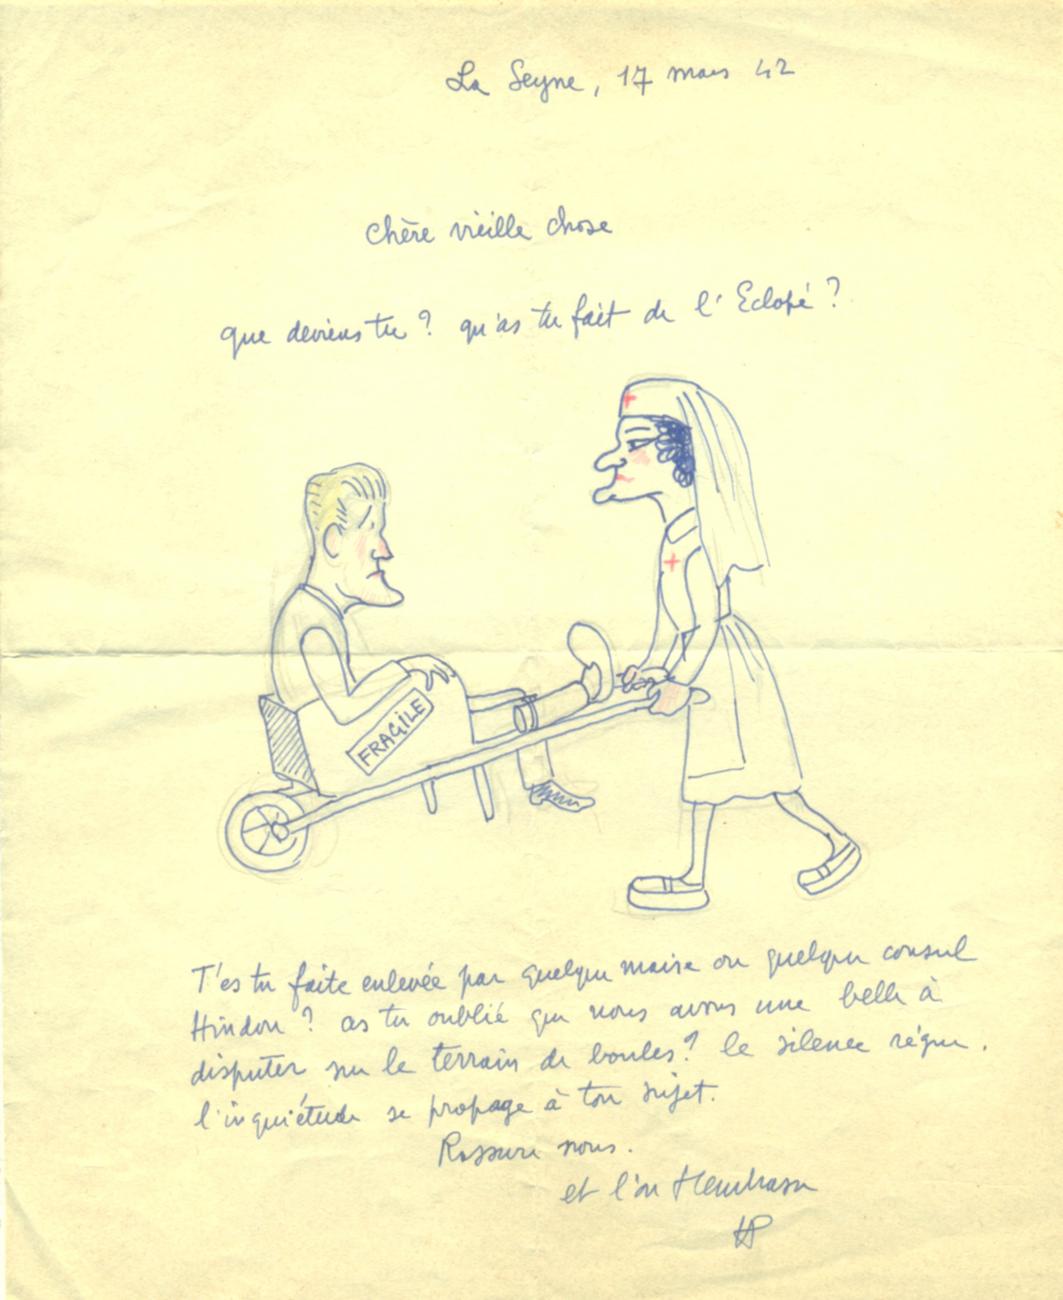 La Seyne, 17 mars 42
Chère vieille chose
que deviens tu ? qu'as tu fait de l'Eclopé ?
FRAGILE
T'es tu faite enlevée par quelque maire ou quelque consul
Hindou ? as tu oublié que nous avons une belle à
disputer sur le terrain de boules ? le silence règne.
l'inquiétude se propage à ton sujet.
Rassure nous.
et l'on t'embrasse